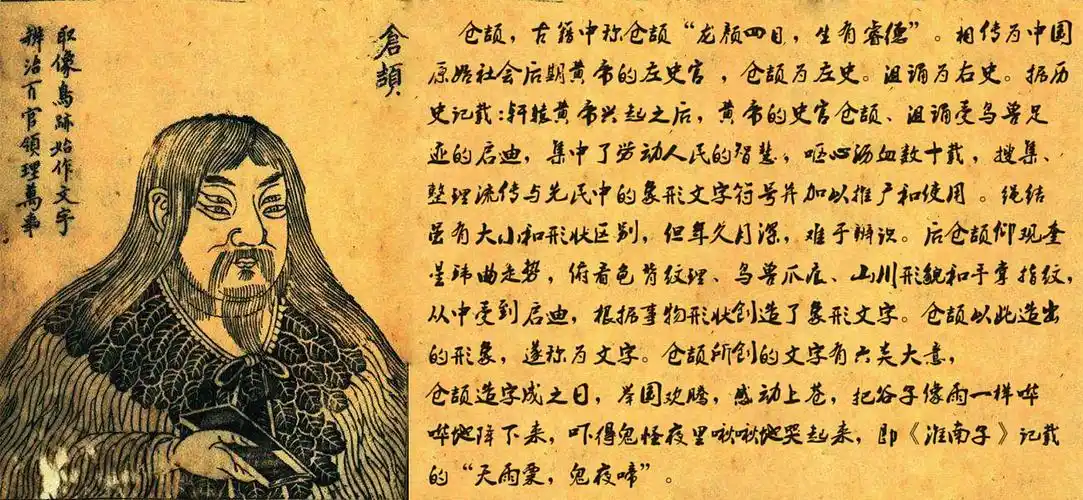 倉頡
取像鳥跡始作文字
辨治百官領理萬事
仓颉，古籍中称仓颉“龙颜四目，生有睿德”。相传为中国
原始社会后期黄帝的左史官，仓颉为左史。沮诵为右史。据历
史记载:轩辕黄帝兴起之后，黄帝的史官仓颉、沮诵受鸟兽足
迹的启迪，集中了劳动人民的智慧，呕心沥血数十载，搜集、
整理流传与先民中的象形文字符号并加以推广和使用。绳结
虽有大小和形状区别，但年久月深，难于辨识。后仓颉仰观奎
星环曲走势，俯看龟背纹理、鸟兽爪痕、山川形貌和手掌指纹，
从中受到启迪，根据事物形状创造了象形文字。仓颉以此造出
的形象，遂称为文字。仓颉所创的文字有六类大意，
仓颉造字成之日，举国欢腾，感动上苍，把谷子像雨一样哗
哗地降下来，吓得鬼怪夜里啾啾地哭起来，即《淮南子》记载
的“天雨粟，鬼夜啼”。